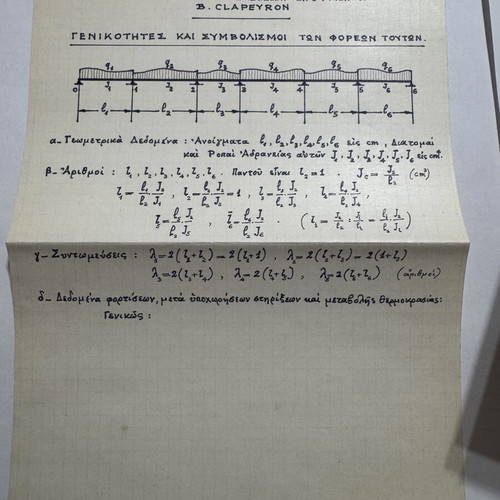 B. CLAPEYRON
ΓΕΝΙΚΟΤΗΤΕΣ ΚΑΙ ΣΥΜΒΟΛΙΣΜΟΙ ΤΩΝ ΦΟΡΕΩΝ ΤΟΥΤΩΝ.
q₁ q₂ q₃ q₄ q₅ q₆
0 J₁ 1 J₂ 2 J₃ 3 J₄ 4 J₅ 5 J₆ 6
ℓ₁ ℓ₂ ℓ₃ ℓ₄ ℓ₅ ℓ₆
α- Γεωμετρικὰ Δεδομένα : Ἀνοίγματα ℓ₁, ℓ₂, ℓ₃, ℓ₄, ℓ₅, ℓ₆ εἰς cm, Διατομαί
καὶ Ροπαὶ Ἀδρανείας αὐτῶν J₁ J₂ J₃ J₄ J₅ J₆ εἰς cm⁴.
β- Ἀριθμοί : ζ₁, ζ₂, ζ₃, ζ₄, ζ₅, ζ₆. Παντοῦ εἶναι ζ₂ = 1. J_c = J₂/ℓ₂ (cm³)
ζ₁ = ℓ₁/ℓ₂ · J₂/J₁, ζ₂ = ℓ₂/ℓ₂ · J₂/J₂ = 1, ζ₃ = ℓ₃/ℓ₂ · J₂/J₃, ζ₄ = ℓ₄/ℓ₂ · J₂/J₄,
ζ₅ = ℓ₅/ℓ₂ · J₂/J₅, ζ₆ = ℓ₆/ℓ₂ · J₂/J₆.
γ- Συντομεύσεις : λ₁ = 2(ζ₁+ζ₂) = 2(ζ₁+1), λ₂ = 2(ζ₂+ζ₃) = 2(1+ζ₃)
λ₃ = 2(ζ₃+ζ₄), λ₄ = 2(ζ₄+ζ₅), λ₅ = 2(ζ₅+ζ₆) (ἀριθμοί)
δ- Δεδομένα φορτίσεων, μετὰ ὑποχωρήσεων στηρίξεων καὶ μεταβολῆς θερμοκρασίας:
Γενικῶς :